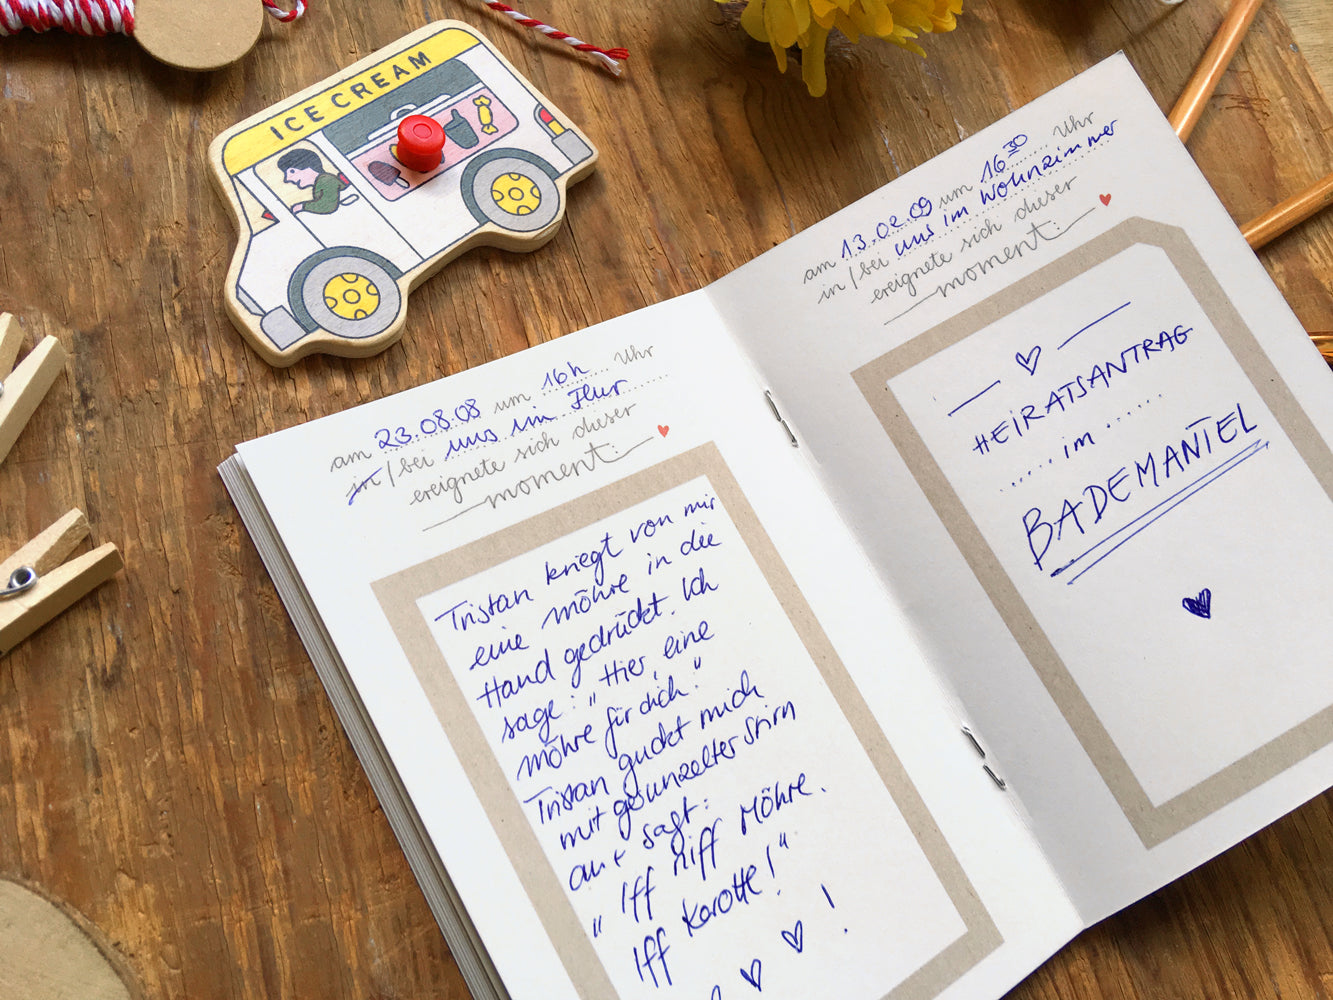 ICE CREAM
am 23.08.08 um 16h Uhr
in / bei uns im Flur
ereignete sich dieser
moment:
Tristan kriegt von mir
eine Möhre in die
Hand gedrückt. Ich
sage: „Hier, eine
Möhre für dich."
Tristan guckt mich
mit gerunzelter Stirn
an + sagt:
„Iff niff Möhre.
Iff Karotte!"
!
am 13.02.09 um 16³⁰ Uhr
in / bei uns im Wohnzimmer
ereignete sich dieser
moment:
HEIRATSANTRAG
..... im .......
BADEMANTEL